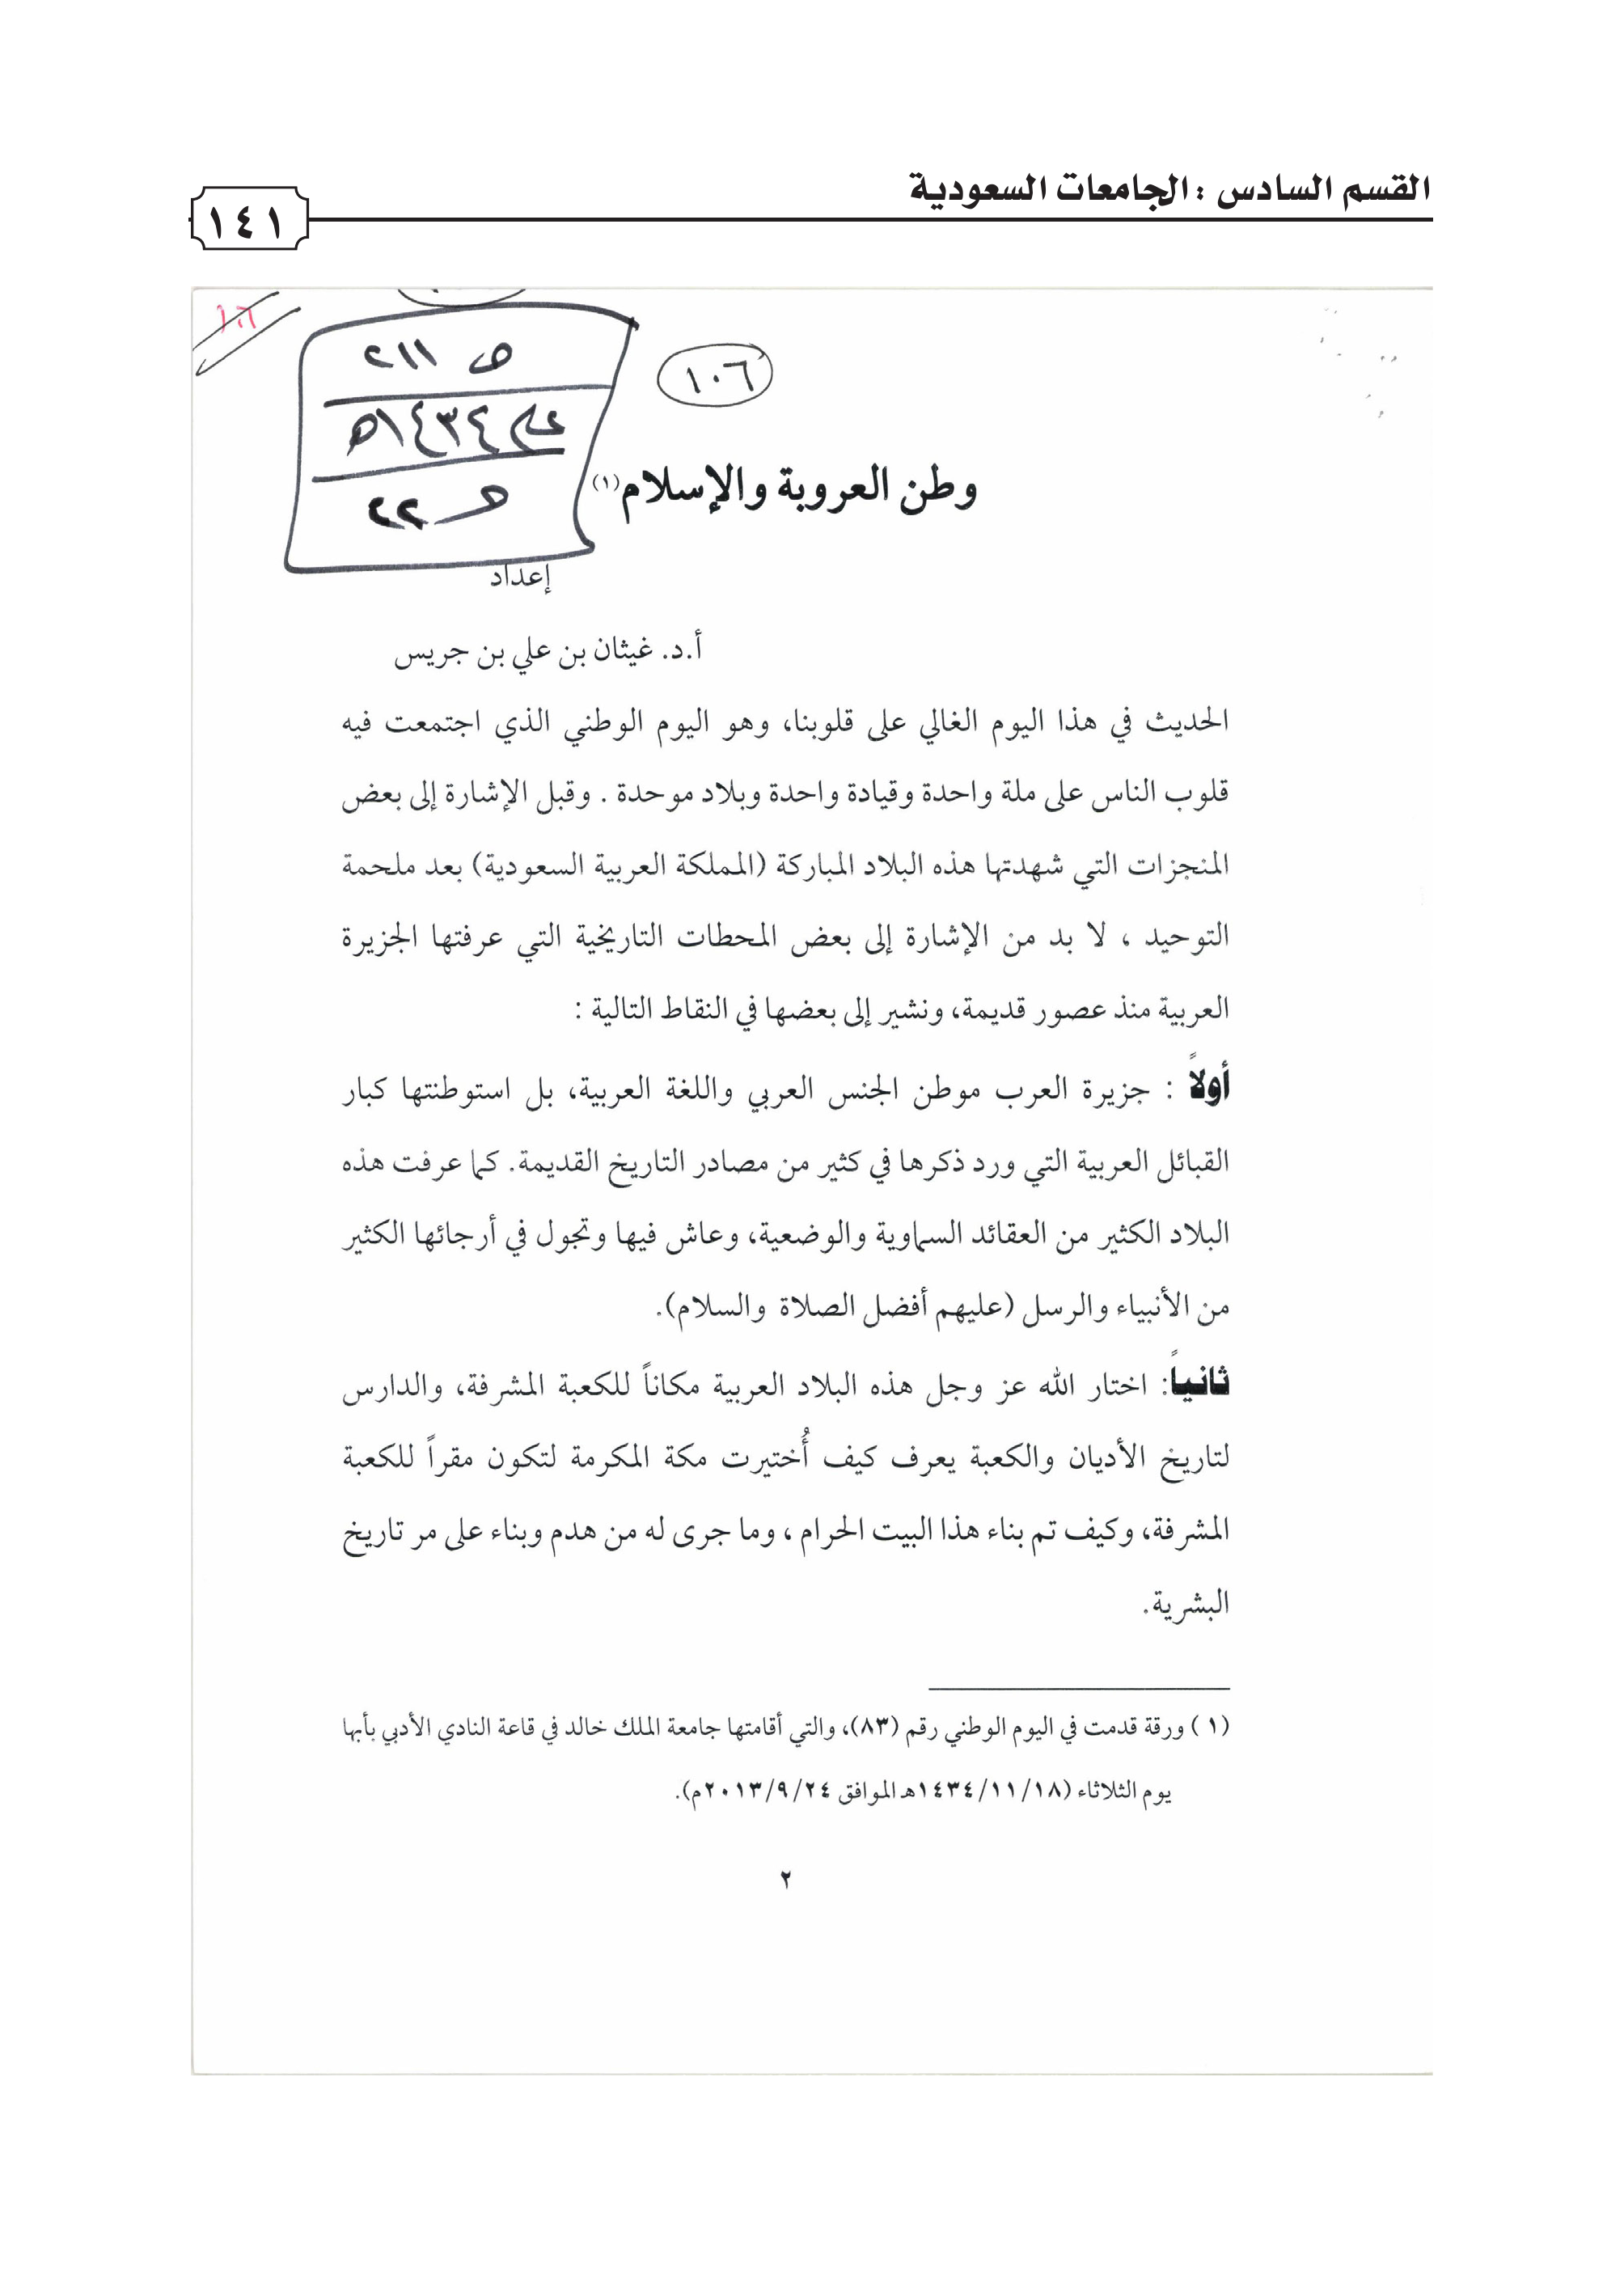 القسم السادس : الجامعات السعودية
١٤١
١٠٦
ص ٢١١
١٤٣٤هـ
٢٢
١٠٦
وطن العروبة والإسلام(١)
إعداد
أ.د. غيثان بن علي بن جريس
الحديث في هذا اليوم الغالي على قلوبنا، وهو اليوم الوطني الذي اجتمعت فيه
قلوب الناس على ملة واحدة وقيادة واحدة وبلاد موحدة . وقبل الإشارة إلى بعض
المنجزات التي شهدتها هذه البلاد المباركة (المملكة العربية السعودية) بعد ملحمة
التوحيد ، لا بد من الإشارة إلى بعض المحطات التاريخية التي عرفتها الجزيرة
العربية منذ عصور قديمة، ونشير إلى بعضها في النقاط التالية :
أولاً : جزيرة العرب موطن الجنس العربي واللغة العربية، بل استوطنتها كبار
القبائل العربية التي ورد ذكرها في كثير من مصادر التاريخ القديمة. كما عرفت هذه
البلاد الكثير من العقائد السماوية والوضعية، وعاش فيها وتجول في أرجائها الكثير
من الأنبياء والرسل (عليهم أفضل الصلاة والسلام).
ثانياً: اختار الله عز وجل هذه البلاد العربية مكاناً للكعبة المشرفة، والدارس
لتاريخ الأديان والكعبة يعرف كيف أُختيرت مكة المكرمة لتكون مقراً للكعبة
المشرفة، وكيف تم بناء هذا البيت الحرام ، وما جرى له من هدم وبناء على مر تاريخ
البشرية.
(١ ) ورقة قدمت في اليوم الوطني رقم (٨٣)، والتي أقامتها جامعة الملك خالد في قاعة النادي الأدبي بأبها
يوم الثلاثاء (١٤٣٤/١١/١٨هـ الموافق ٢٠١٣/٩/٢٤م).
٢